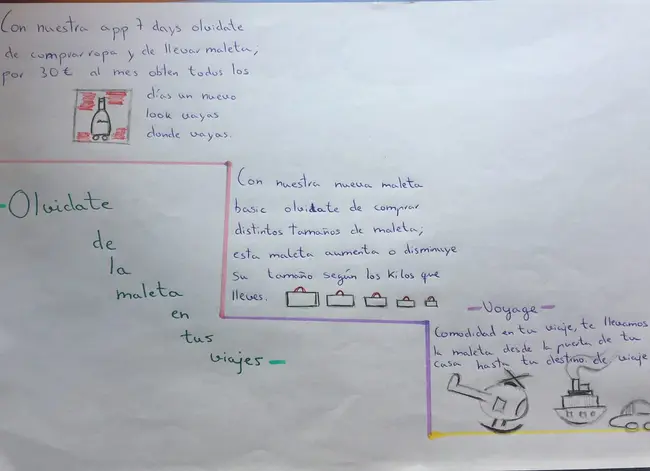 Con nuestra app 7 days olvidate
de comprar ropa y de llevar maleta,
por 30€ al mes obten todos los
días un nuevo
look vayas
donde vayas.
Olvidate
de
la
maleta
en
tus
viajes
Con nuestra nueva maleta
basic olvidate de comprar
distintos tamaños de maleta;
esta maleta aumenta o disminuye
su tamaño según los kilos que
lleves.
Voyage
Comodidad en tu viaje, te llevamos
la maleta desde la puerta de tu
casa hasta tu destino de viaje